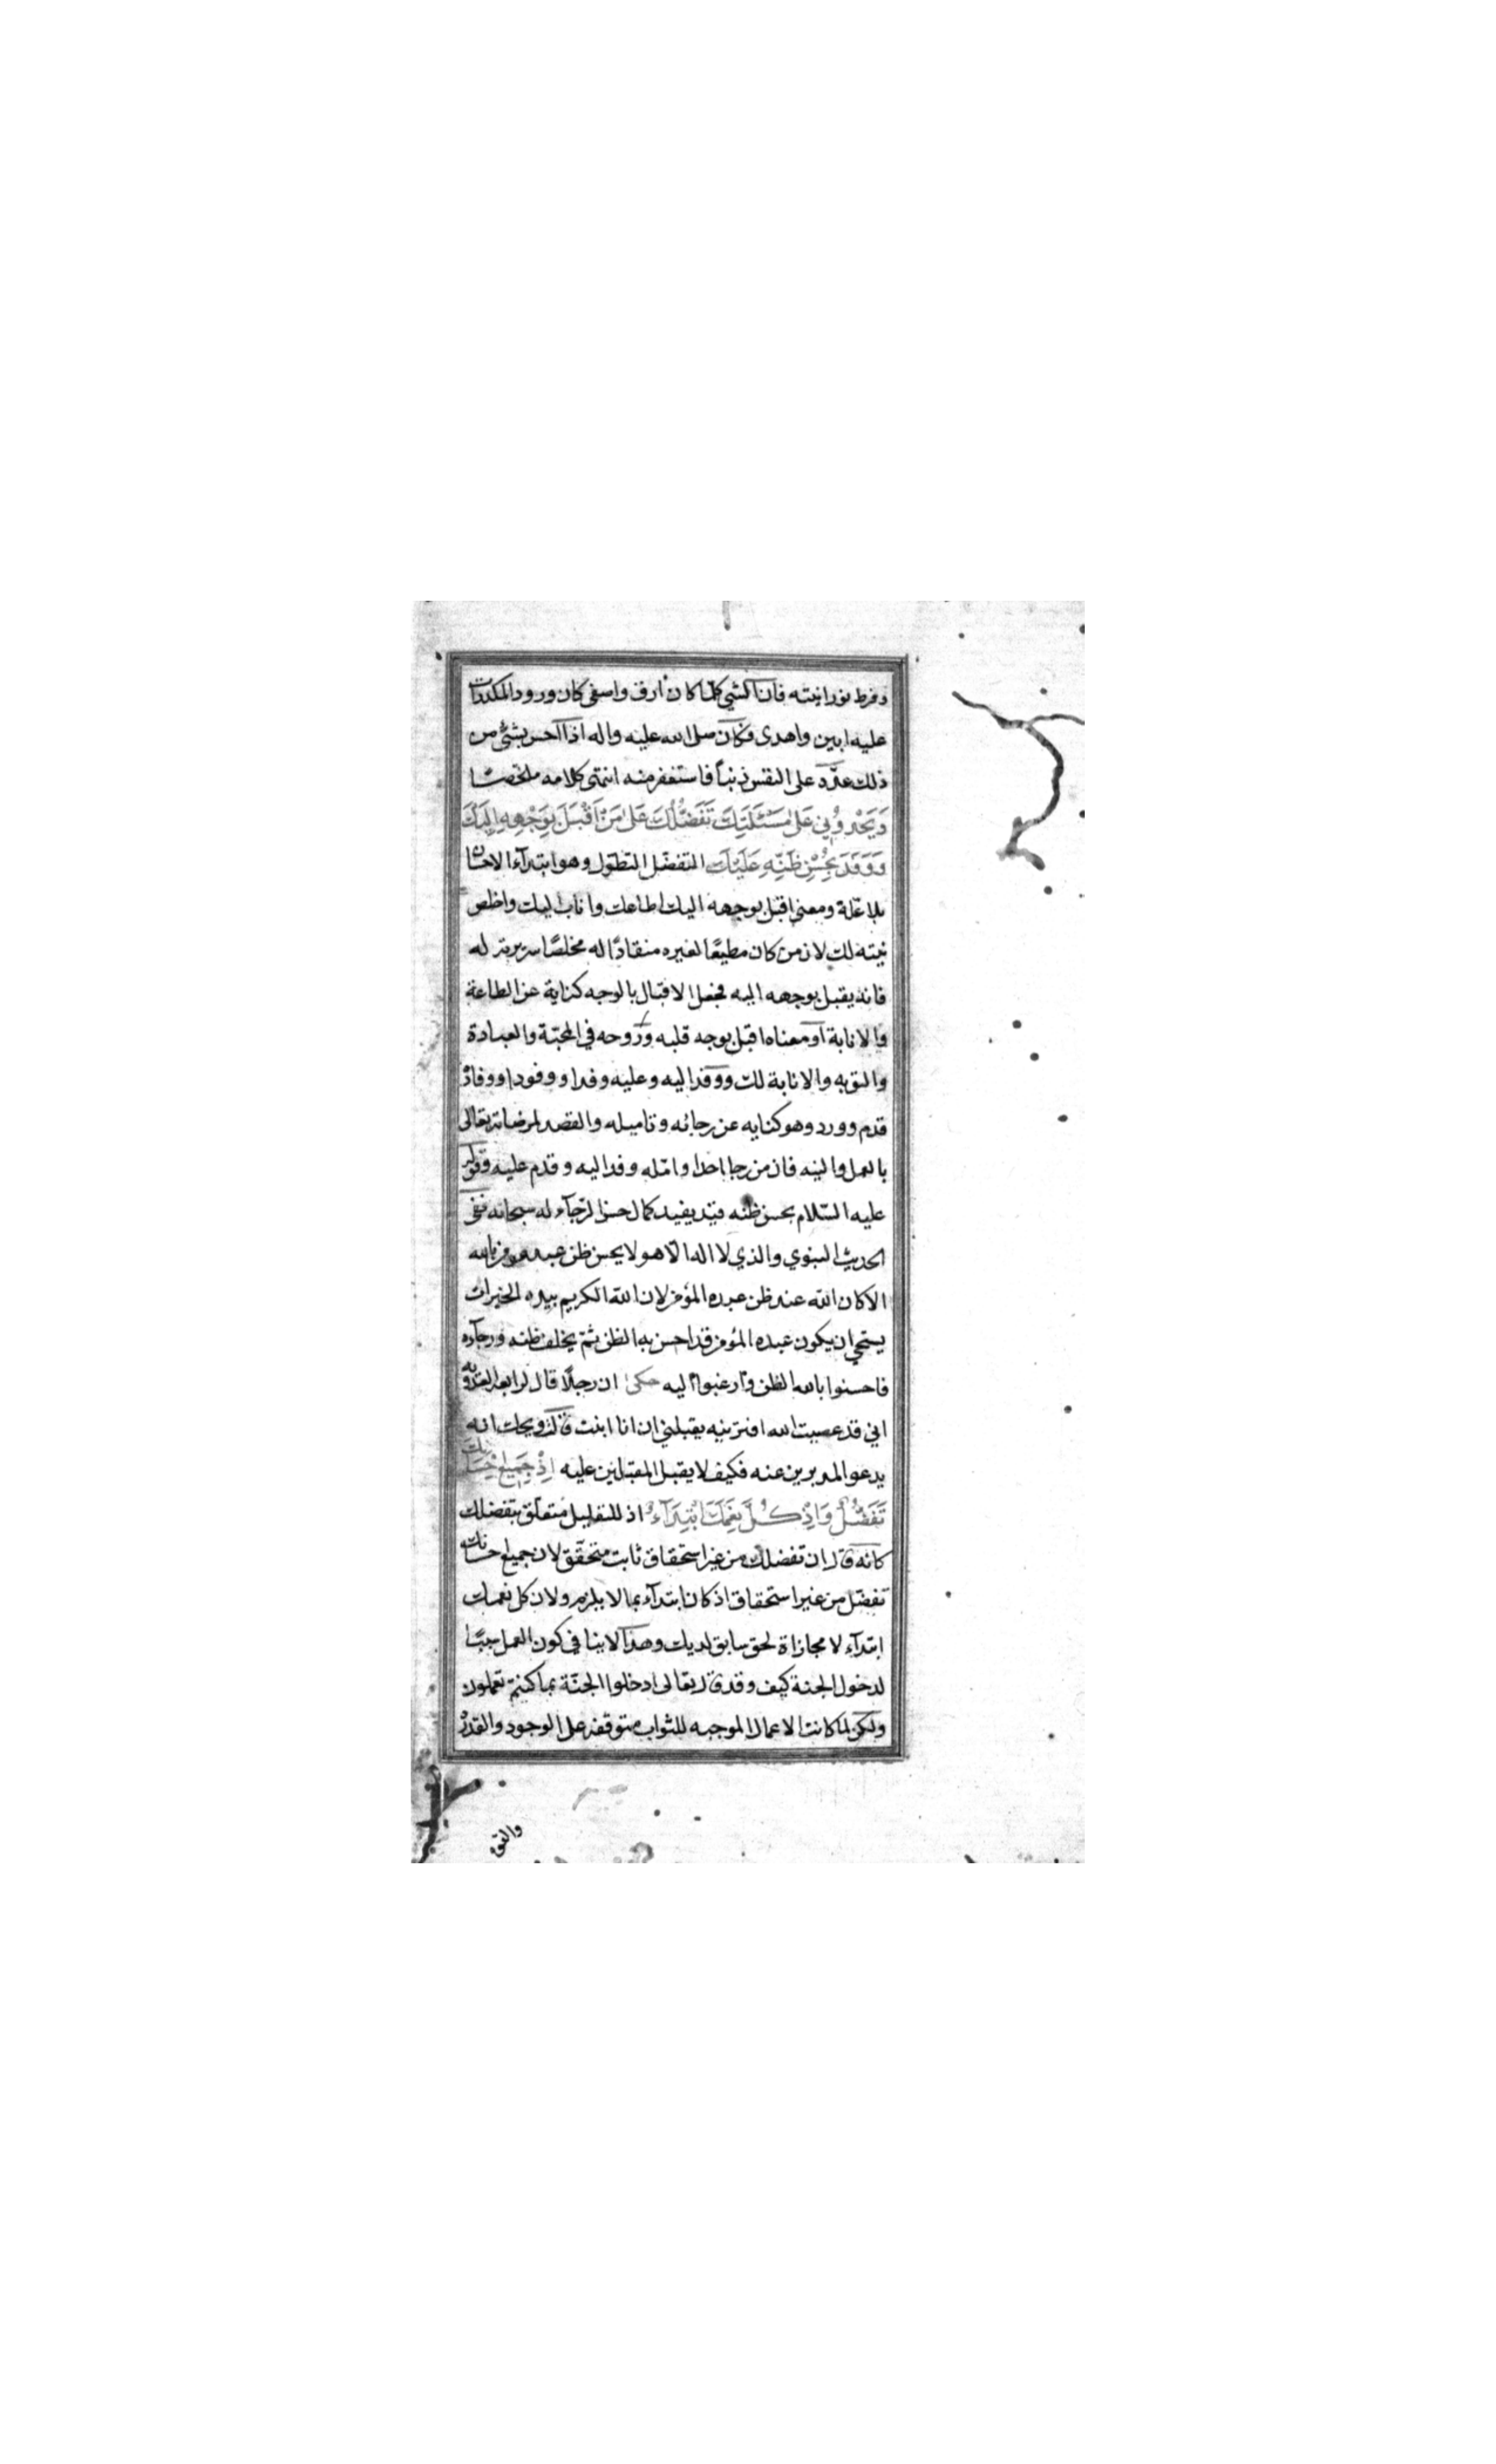 وفرط نورانيته فان الشي كلما كان ارق واصفى كان ورود المكدرات
عليه ابين واهدى وكان صلى الله عليه واله اذا احس بشئ من
ذلك عدّه على النفس ذنباً فاستغفر منه انتهى كلامه ملخصًا
وَيَحْدُوني عَلىٰ مَسْئَلَتِكَ تَفَضُّلُكَ عَلىٰ مَنْ اَقْبَلَ بِوَجْهِهِ اِلَيْكَ
وَوَفَدَ بِحُسْنِ ظَنِّهِ عَلَيْكَ التفضّل التطوّل وهو ابتدآء الاحسان
بلا علّة ومعنى اقبل بوجهه اليك اطاعك واناب اليك واخلص
نيته لك لان من كان مطيعًا لغيره منقادًا له مخلصًا سريرته له
فانه يقبل بوجهه اليه فجعل الاقبال بالوجه كناية عن الطاعة
والانابة او معناه اقبل بوجه قلبه وروحه في المحبّة والعبادة
والتوبه والانابة لك ووفد اليه وعليه وفدا ووفودا ووفادة
قدم وورد وهو كنايه عن رجائه وتاميله والقصد لمرضاته تعالى
بالعمل والنيه فان من رجا احدا وامّله وفد اليه وقدم عليه وقوله
عليه السّلام بحسن ظنه قيد يفيد كمال حسن الرّجآء له سبحانه ففي
الحديث النبوي والذي لا اله الّا هو لا يحسن ظن عبد مومن بالله
الا كان الله عند ظن عبده المؤمن لان الله الكريم بيده الخيرات
يستحي ان يكون عبده المؤمن قد احسن به الظن ثمّ يخلف ظنه ورجآءه
فاحسنوا بالله الظن وارغبوا اليه حكى ان رجلًا قال لرابعه العدويه
اني قد عصيت الله افترينه يقبلني ان انا ابنت قالت ويحك انه
يدعو المدبرين عنه فكيف لا يقبل المقبلين عليه اِذْ جَميعُ اِحْسَانِكَ
تَفَضُّلٌ وَاِذْ كُلُّ نِعَمِكَ ابْتِدَآءٌ اذ للتعليل متعلّق بتفضلك
كانه قال ان تفضلك من غير استحقاق ثابت متحقّق لان جميع احسانك
تفضّل من غير استحقاق اذ كان ابتدآء بما لا يلزم ولان كل نعمك
ابتدآء لا مجازاة لحق سابق لديك وهذا لا ينافي كون العمل سببًا
لدخول الجنة كيف وقد قال تعالى ادخلوا الجنّة بما كنتم تعملون
ولكن لما كانت الاعمال الموجبه للثواب متوقفه على الوجود والقدرة
والقوى